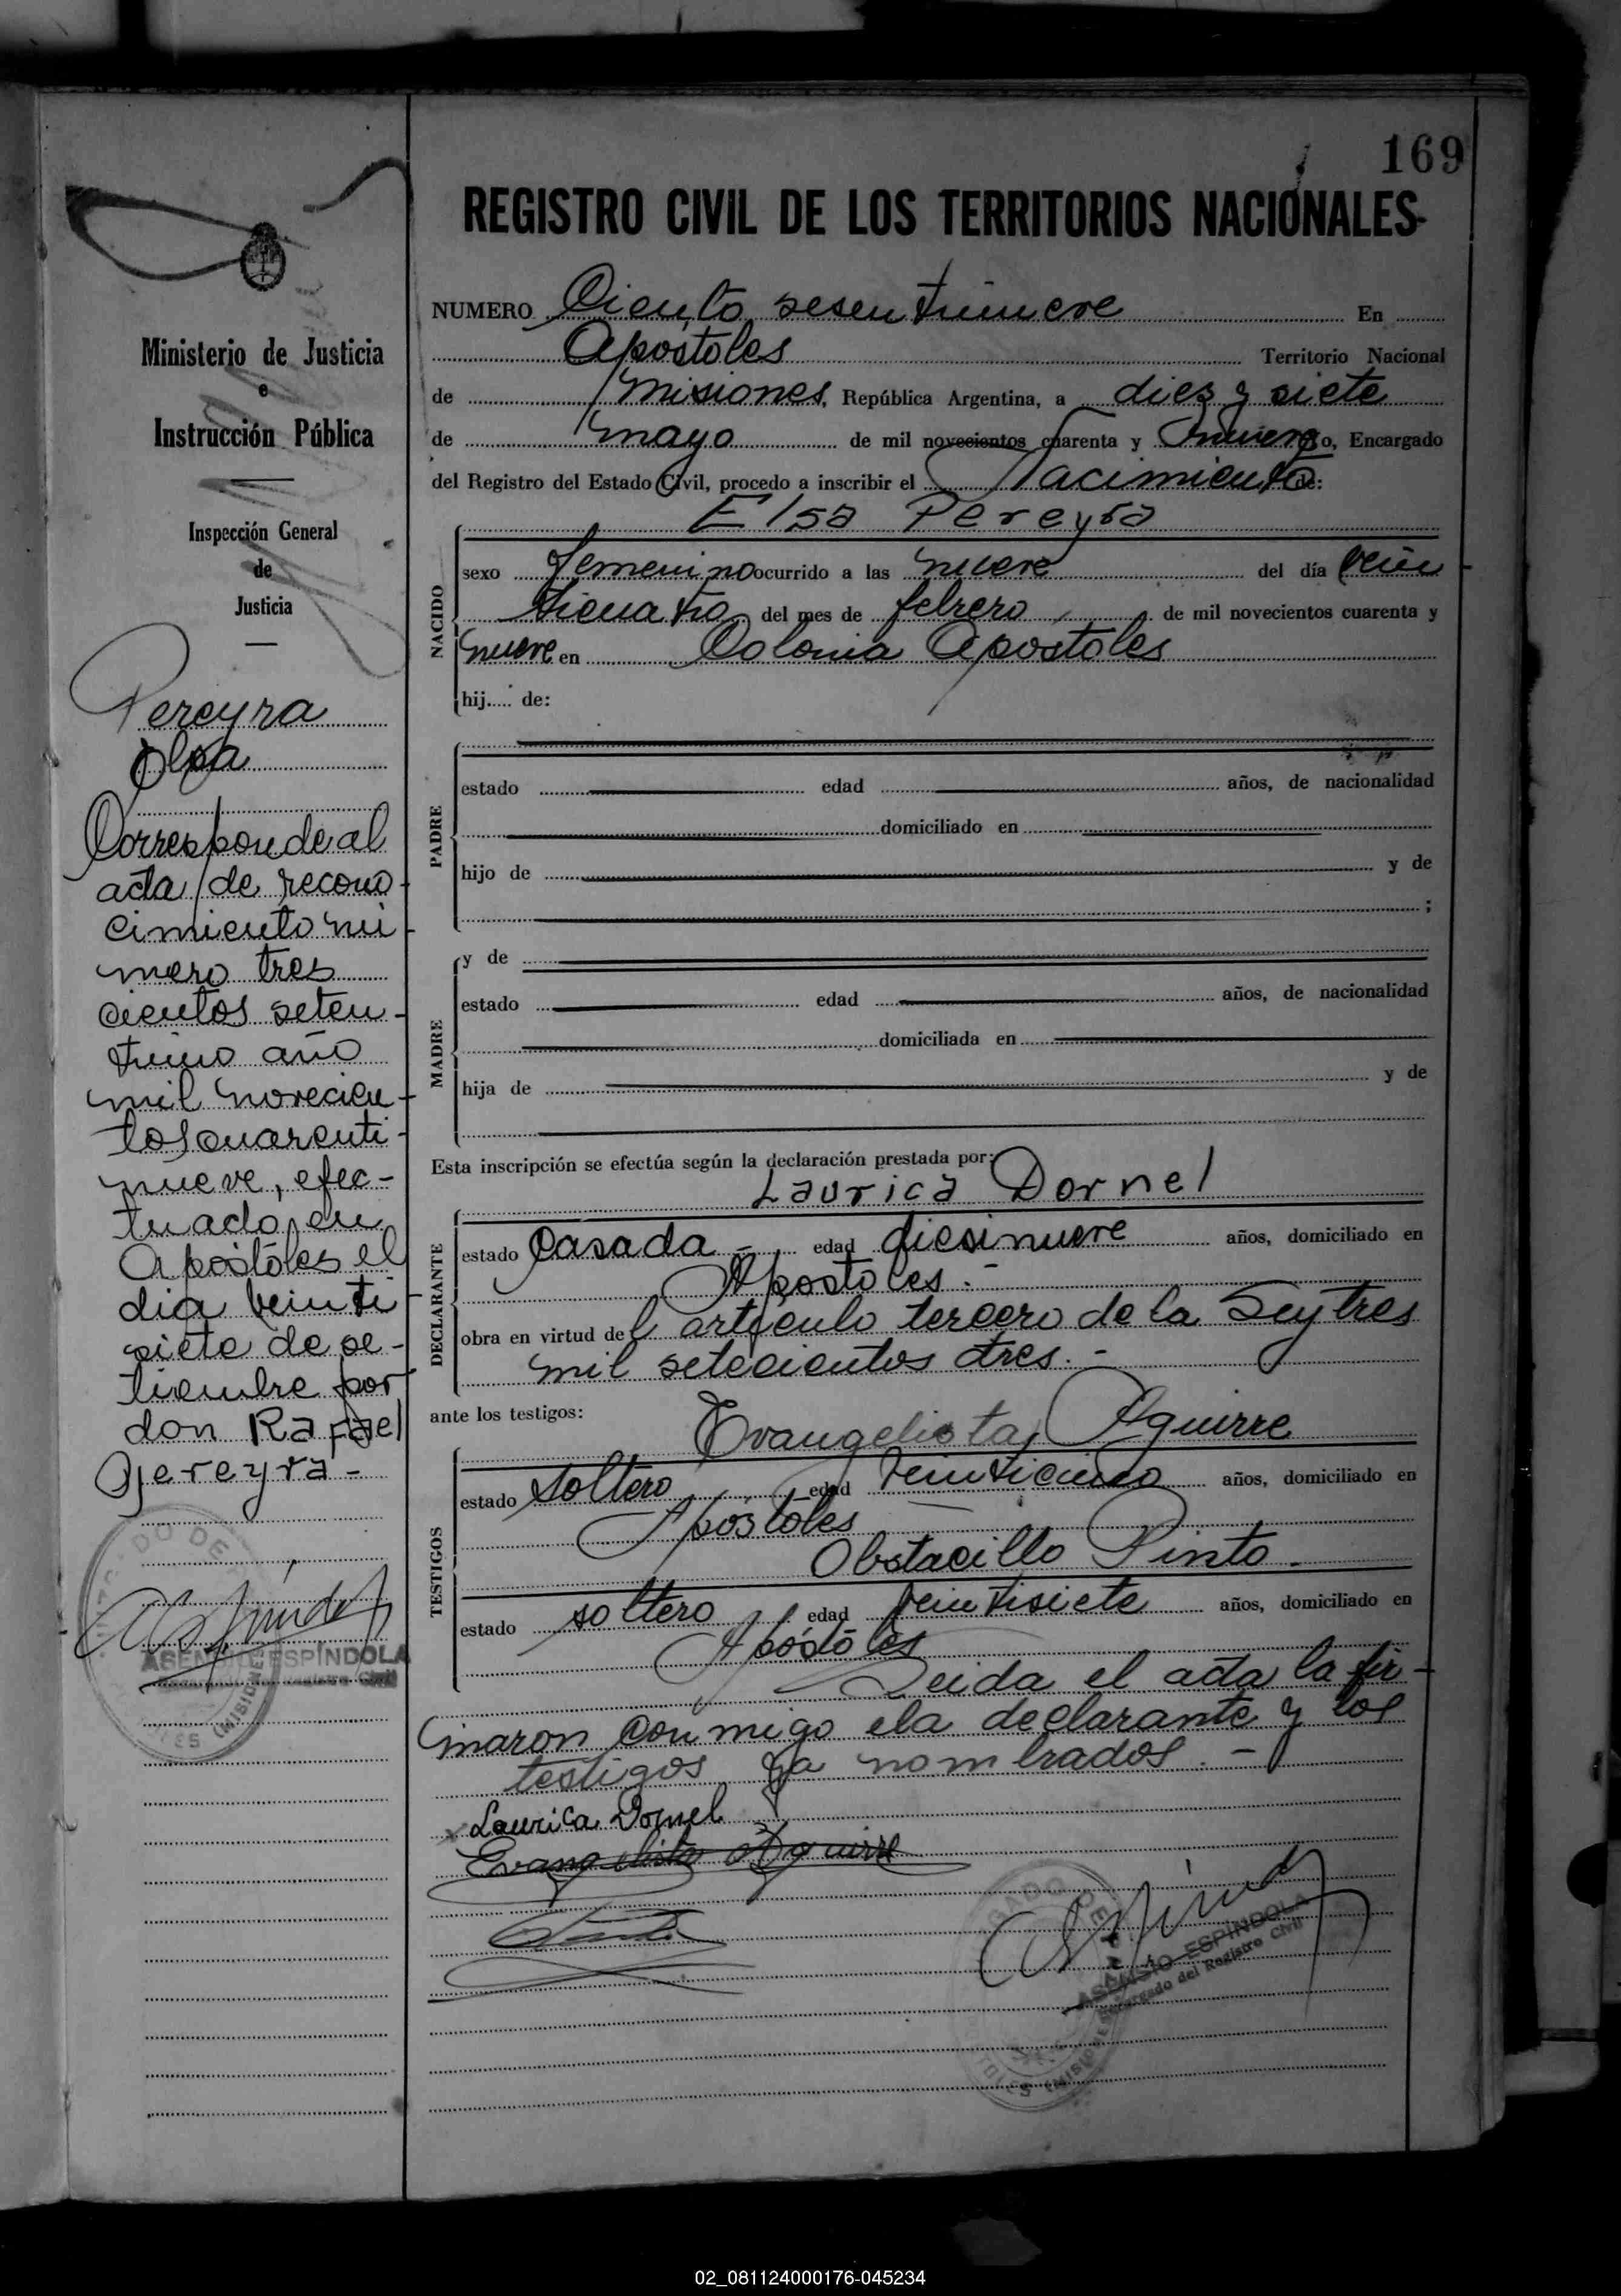 169
REGISTRO CIVIL DE LOS TERRITORIOS NACIONALES
Ministerio de Justicia
e
Instrucción Pública
Inspección General
de
Justicia
Pereyra
Elsa
Corresponde al
acta de recono
cimiento nú
mero tres
cientos seten-
tiuno año
mil novecien-
tos cuarenti-
nueve, efec-
tuado en
Apóstoles el
dia veinti
siete de se-
tiembre por
don Rafael
Pereyra -
ASENCIO ESPÍNDOLA
Registro Civil
NUMERO Ciento sesentinueve En
Apóstoles Territorio Nacional
de Misiones, República Argentina, a diez y siete
de mayo de mil novecientos cuarenta y nueve yo, Encargado
del Registro del Estado Civil, procedo a inscribir el Nacimiento de:
Elsa Pereyra
NACIDO
sexo femenino ocurrido a las nueve del día vein
ticuatro del mes de febrero de mil novecientos cuarenta y
nueve en Colonia Apóstoles
hij.... de:
PADRE
estado edad años, de nacionalidad
domiciliado en
hijo de y de
;
MADRE
y de
estado edad años, de nacionalidad
domiciliada en
hija de y de
Esta inscripción se efectúa según la declaración prestada por:
Laurica Dornel
DECLARANTE
estado casada - edad diesinueve años, domiciliado en
Apostoles. -
obra en virtud del artículo tercero de la Ley tres
mil setecientos tres. -
ante los testigos:
Evangelista Aguirre
TESTIGOS
estado soltero edad veinticinco años, domiciliado en
Apóstoles
Obstacillo Pinto -
estado soltero edad veintisiete años, domiciliado en
Apóstoles
Leida el acta la fir-
maron conmigo ela declarante y los
testigos ya nombrados. -
Laurica Dornel
Evangelista Aguirre
ASENSIO ESPÍNDOLA
Encargado del Registro Civil
02_081124000176-045234